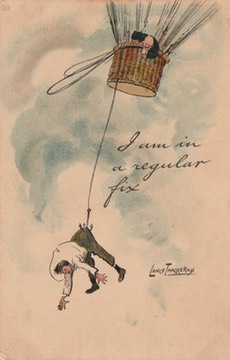 I am in
a regular
fix
Lance Thackeray